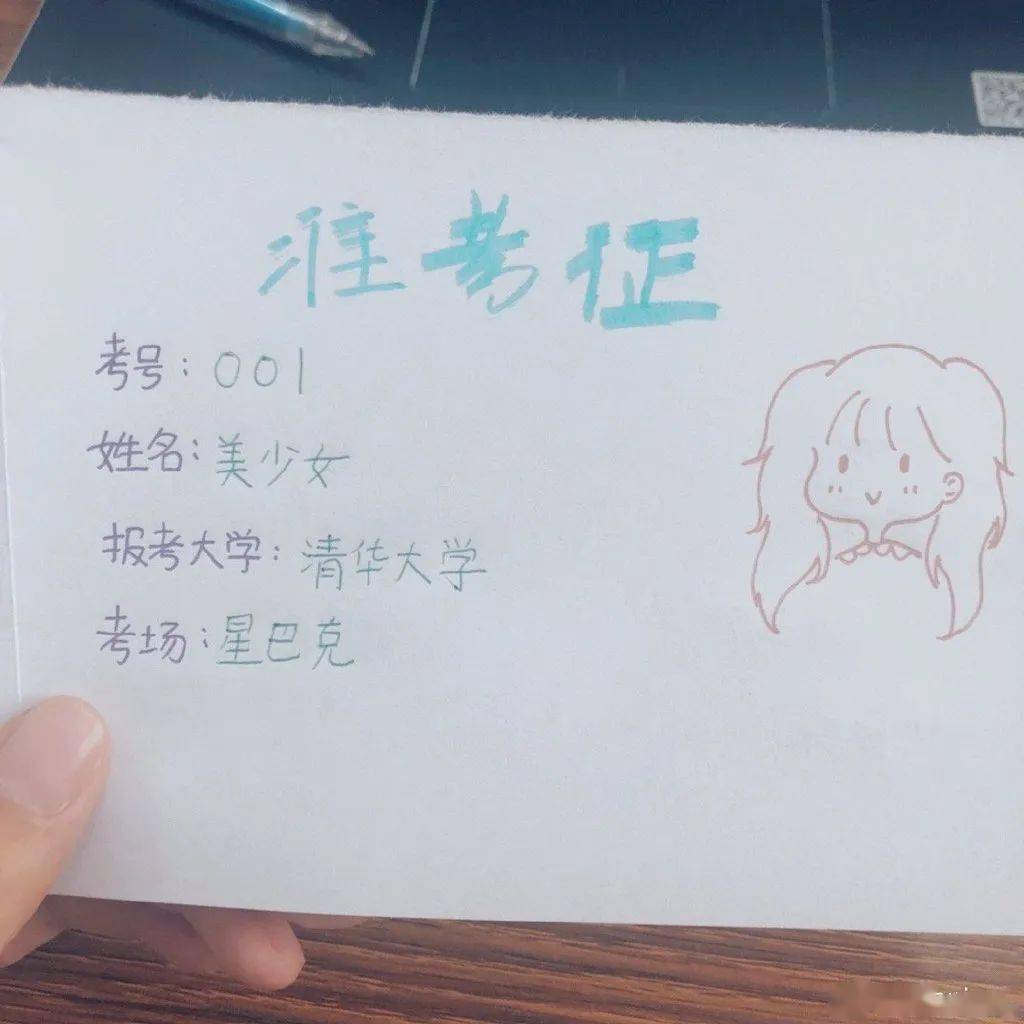 准考证
考号：001
姓名：美少女
报考大学：清华大学
考场：星巴克